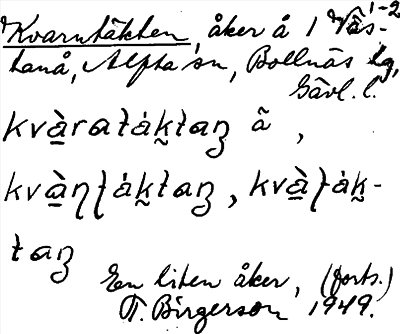 Kvarntäkten, åker å 1 1-2 Väs-
tanå, Alfta sn, Bollnäs tg,
Gävl. l.
kvàratáktaŋ å̃,
kvàƞʈáktaŋ, kvàʈák-
taŋ
En liten åker, (forts.)
T. Birgerson 1949.